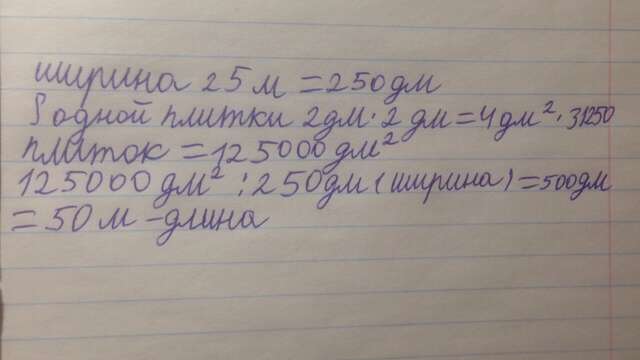 ширина 25 м = 250 дм
S одной плитки 2 дм · 2 дм = 4 дм² · 31250
плиток = 125000 дм²
125000 дм² : 250 дм (ширина) = 500 дм
= 50 м - длина